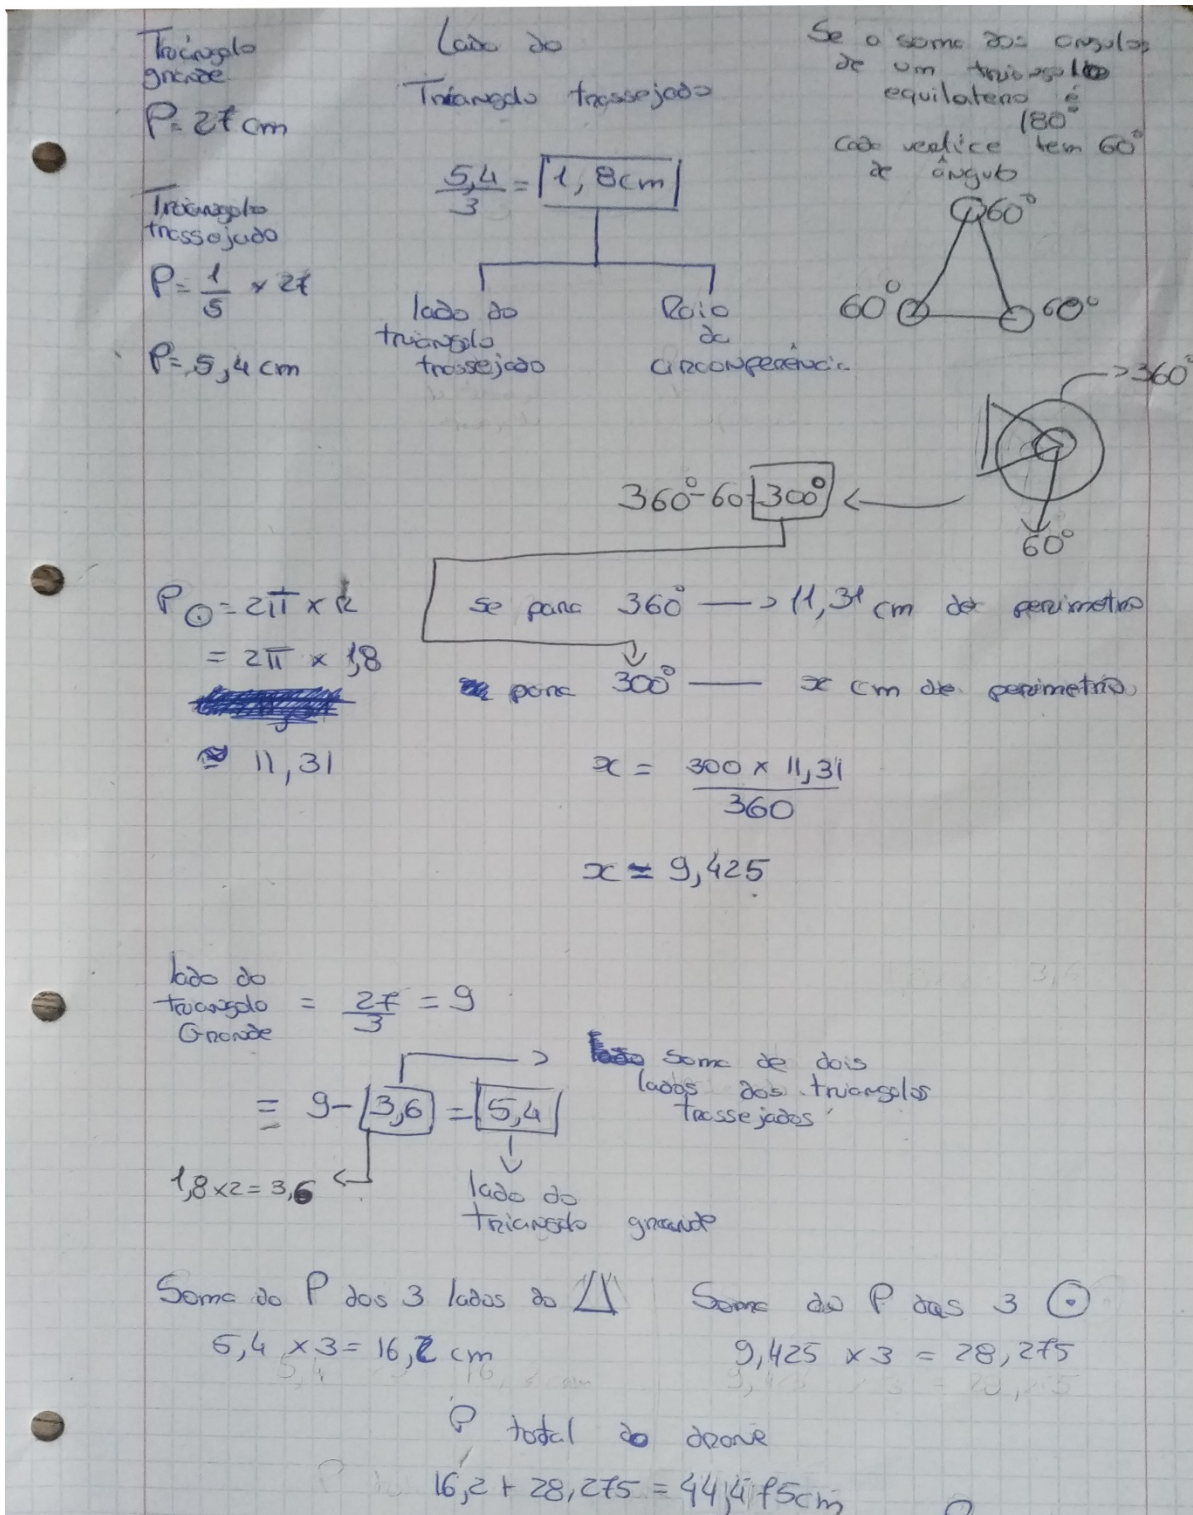 Triângulo
grande
P= 27 cm
Triângulo
trassejado
P= 1/5 × 27
P= 5,4 cm
Lado do
Triangulo trassejado
5,4/3 = 1,8cm
lado do
triangulo
trassejado
Raio
da
circonferência
Se a soma dos angulos
de um triangulo
equilatero é
180°
cada vertice tem 60°
de ângulo
60°
60°
60°
360°
60°
360°-60=300°
P⊙ = 2π × R
= 2π × 1,8
≈ 11,31
se para 360° —> 11,31 cm de perimetro
para 300° — x cm de perimetro
x = 300 × 11,31/360
x = 9,425
lado do
triangulo
Grande
= 27/3 = 9
= 9-3,6 = 5,4
soma de dois
lados dos triangulos
trassejados
1,8×2=3,6
lado do
triangulo grande
Soma do P dos 3 lados do △
5,4 ×3= 16,2 cm
Soma do P das 3 ⊙
9,425 ×3 = 28,275
P total do drone
16,2+ 28,275 = 44,475cm